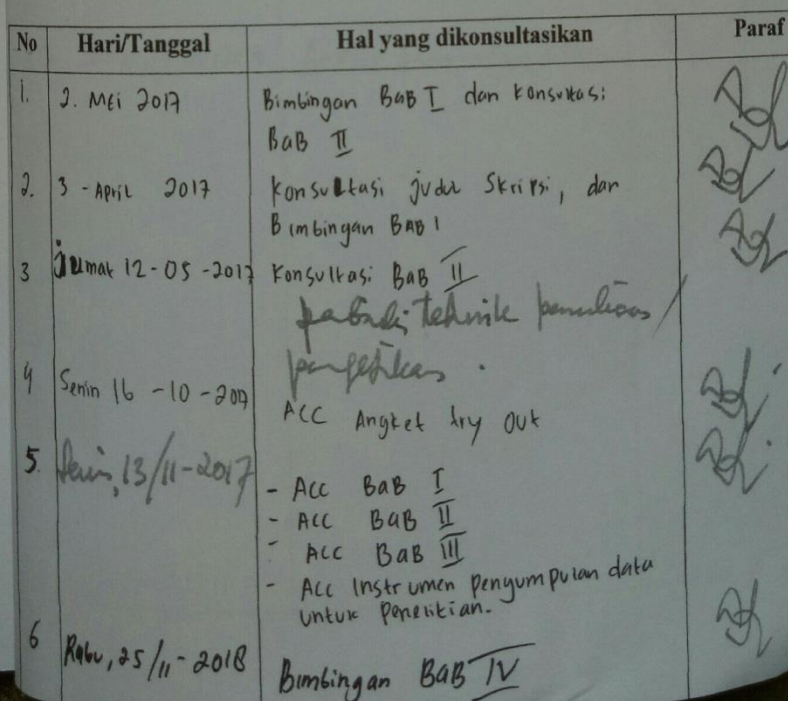 No Hari/Tanggal Hal yang dikonsultasikan Paraf
1. 2. Mei 2017 Bimbingan BaB I dan Konsultasi
BaB II
2. 3 - April 2017 Konsultasi judul Skripsi, dan
Bimbingan BAB I
3 Jumat 12-05-2017 Konsultasi BaB II
perbaiki teknik penulisan /
pengetikan.
4 Senin 16-10-2017 ACC Angket try out
5. Senin, 13/11-2017
- Acc BaB I
- Acc BaB II
- Acc BaB III
- Acc Instrumen pengumpulan data
untuk Penelitian.
6 Rabu, 25/11-2018 Bimbingan BaB IV